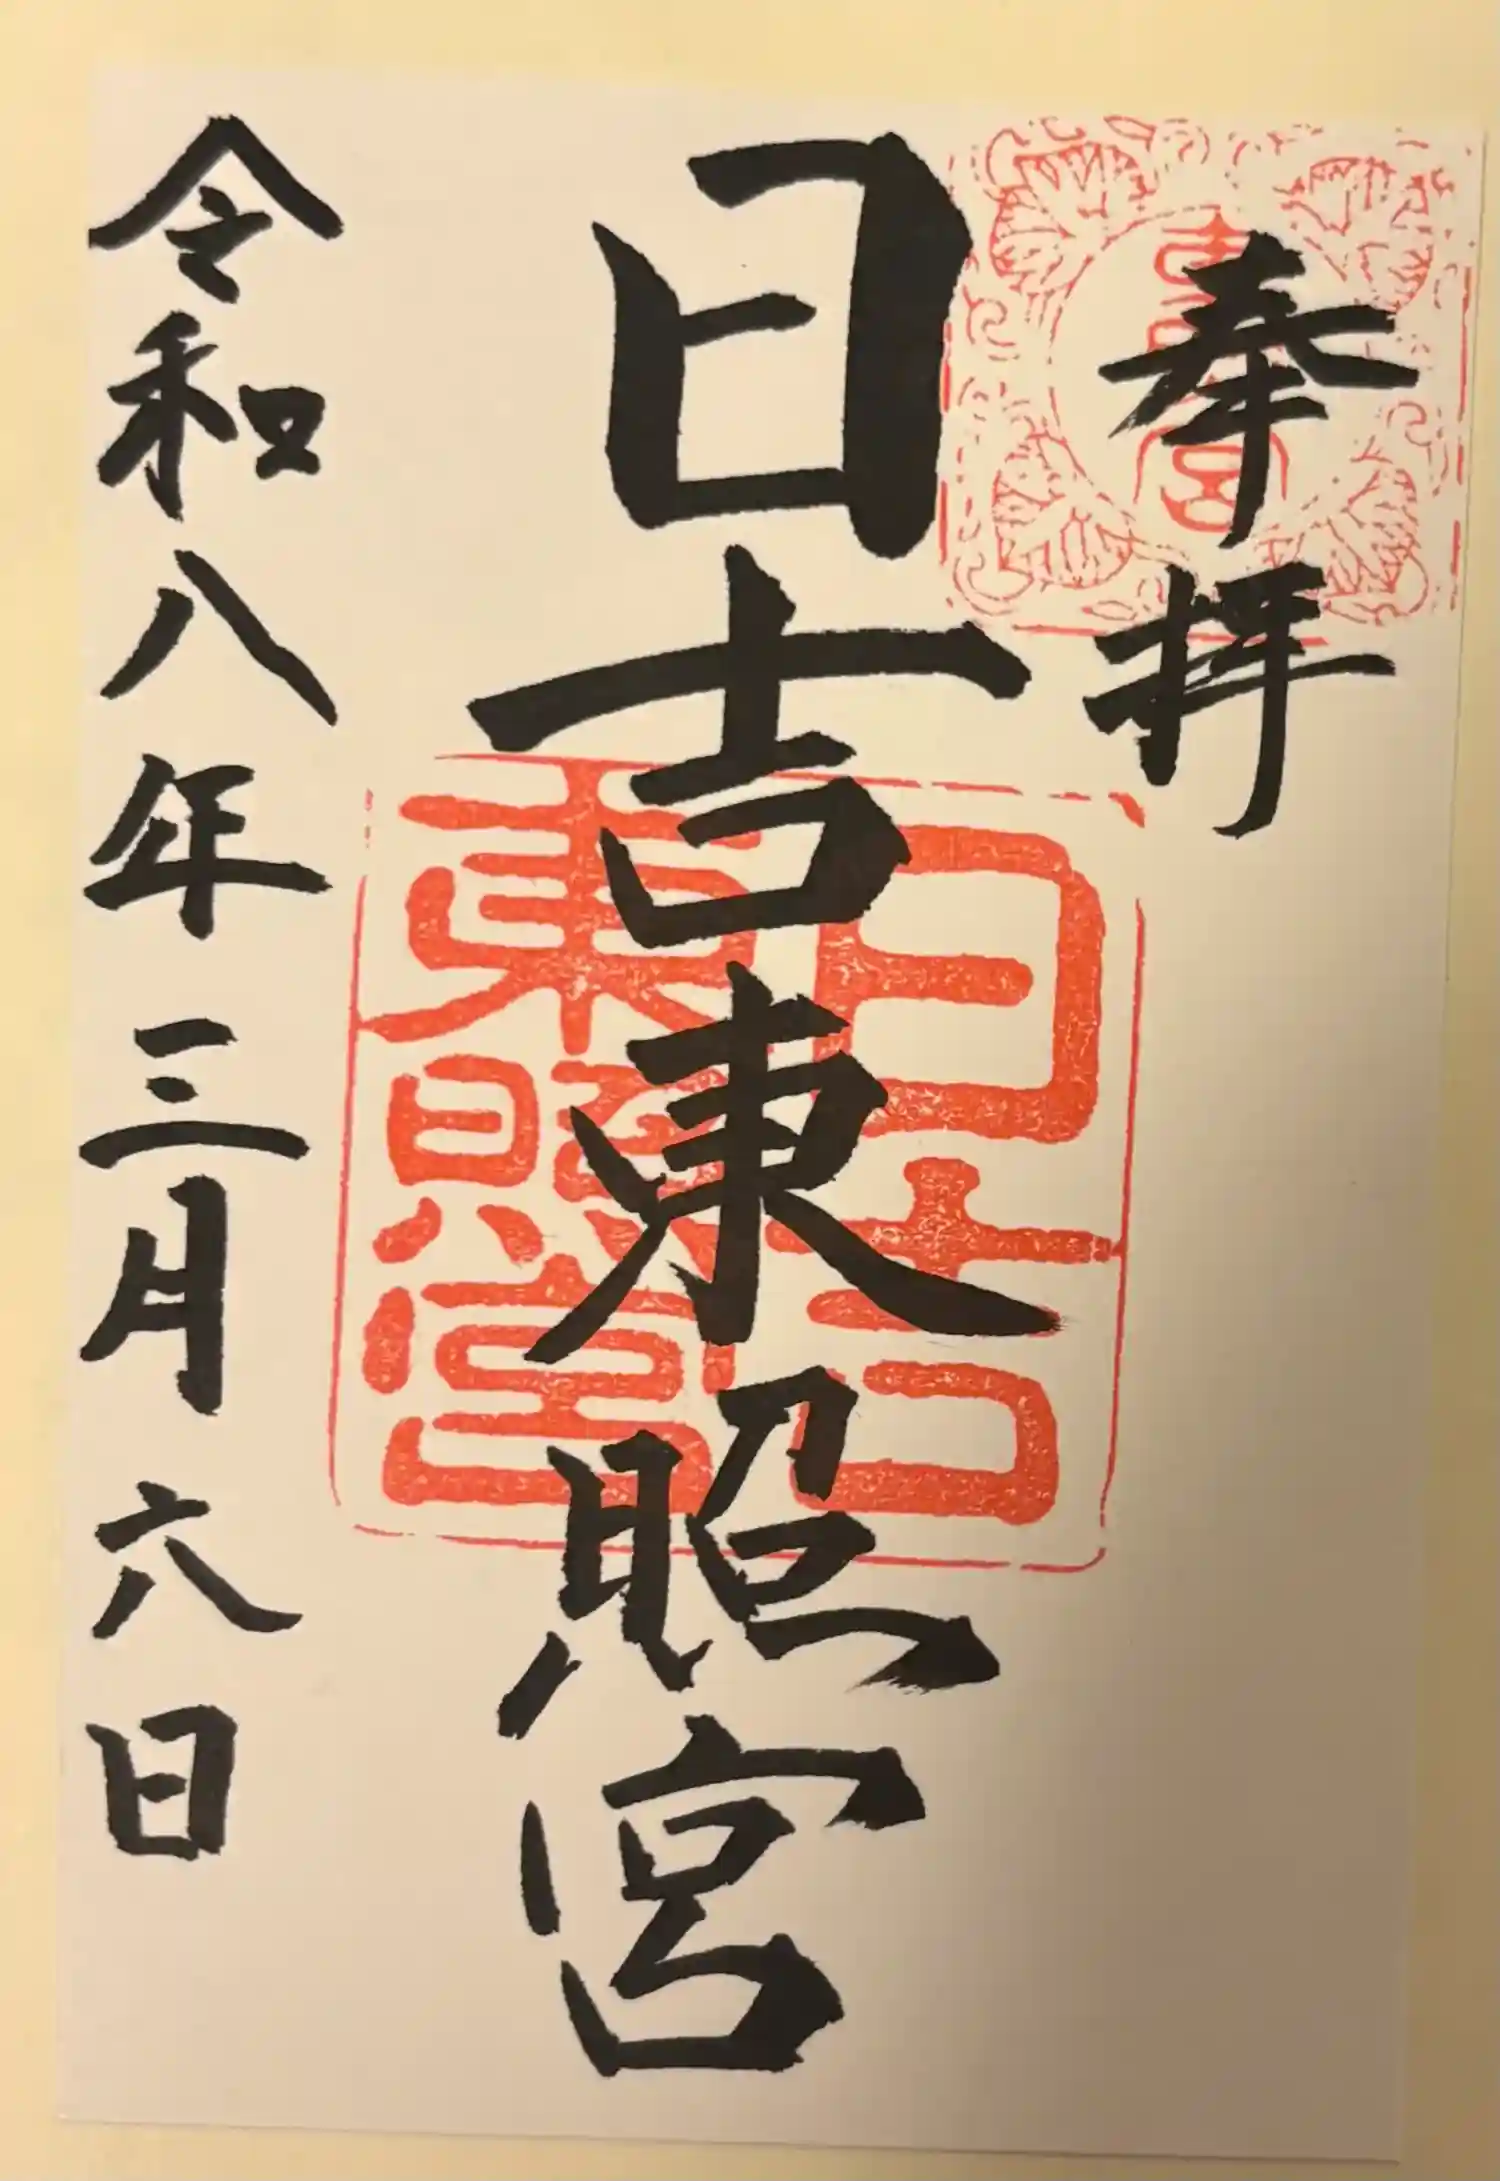 奉拝
日吉東照宮
日吉
東照宮
令和八年三月六日